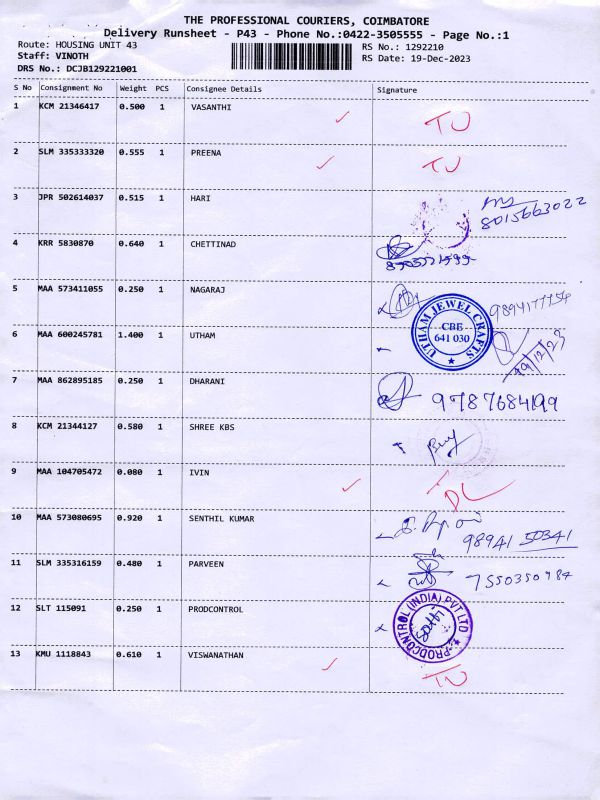 THE PROFESSIONAL COURIERS, COIMBATORE
Delivery Runsheet - P43 - Phone No.:0422-3505555 - Page No.:1
Route: HOUSING UNIT 43 RS No.: 1292210
Staff: VINOTH RS Date: 19-Dec-2023
DRS No.: DCJB129221001
S No Consignment No Weight PCS Consignee Details Signature
1 KCM 21346417 0.500 1 VASANTHI
2 SLM 335333320 0.555 1 PREENA
3 JPR 502614037 0.515 1 HARI 8015663022
4 KRR 5830870 0.640 1 CHETTINAD
5 MAA 573411055 0.250 1 NAGARAJ
6 MAA 600245781 1.400 1 UTHAM UTHAM JEWEL CRAFTS CBE 641 030 19/12/23
7 MAA 862895185 0.250 1 DHARANI 9787684199
8 KCM 21344127 0.580 1 SHREE KBS
9 MAA 104705472 0.080 1 IVIN DL
10 MAA 573080695 0.920 1 SENTHIL KUMAR 98941 50341
11 SLM 335316159 0.480 1 PARVEEN 7550350984
12 SLT 115091 0.250 1 PRODCONTROL PRODCONTROL (INDIA) PVT LTD
13 KMU 1118843 0.610 1 VISWANATHAN